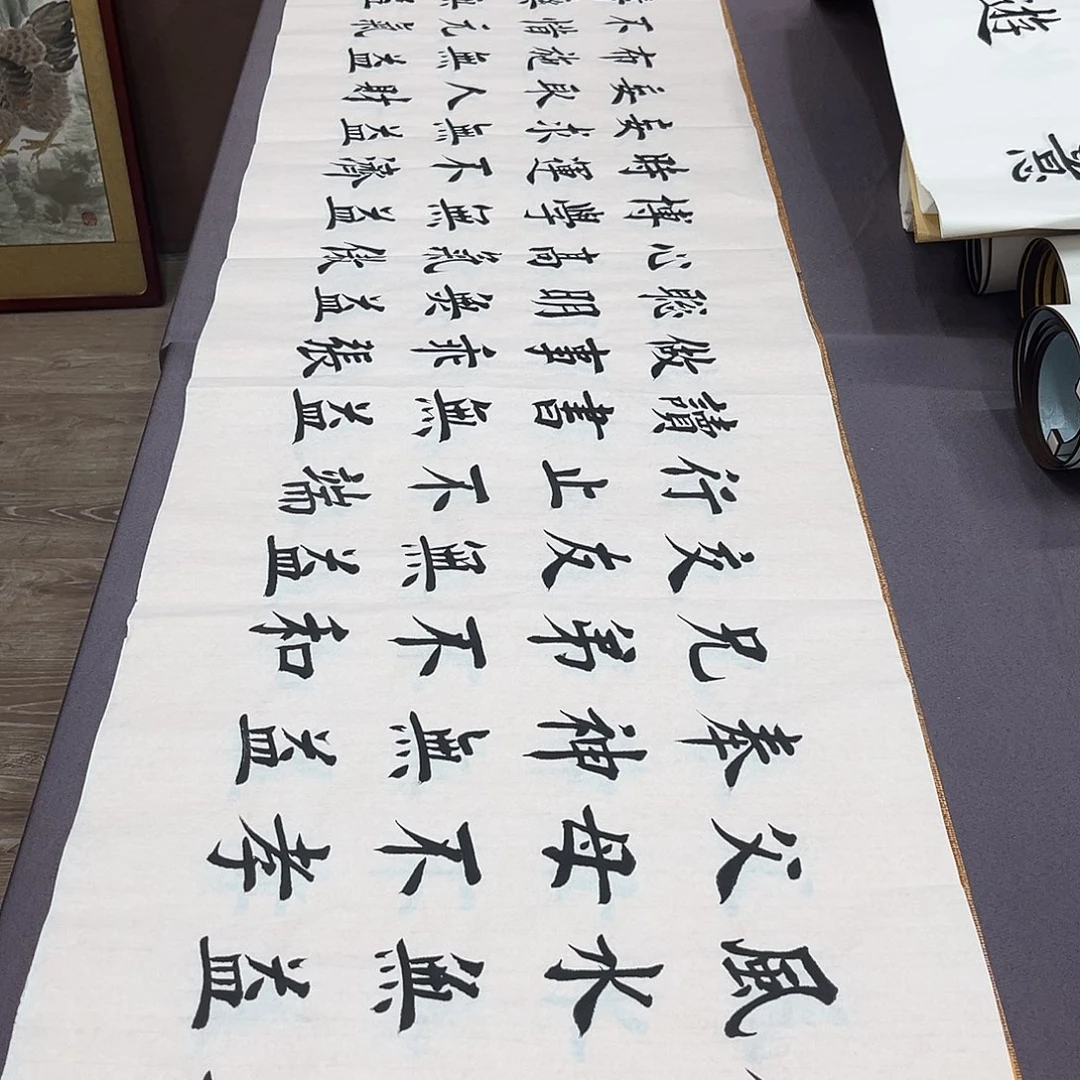 風水無益
父母不孝
奉神無益
兄弟不和
交友無益
行止不端
讀書無益
做事乖張
聰明無益
心高氣傲
博學無益
時運不濟
妄求無益
妄取人財
布施無益
不惜元氣